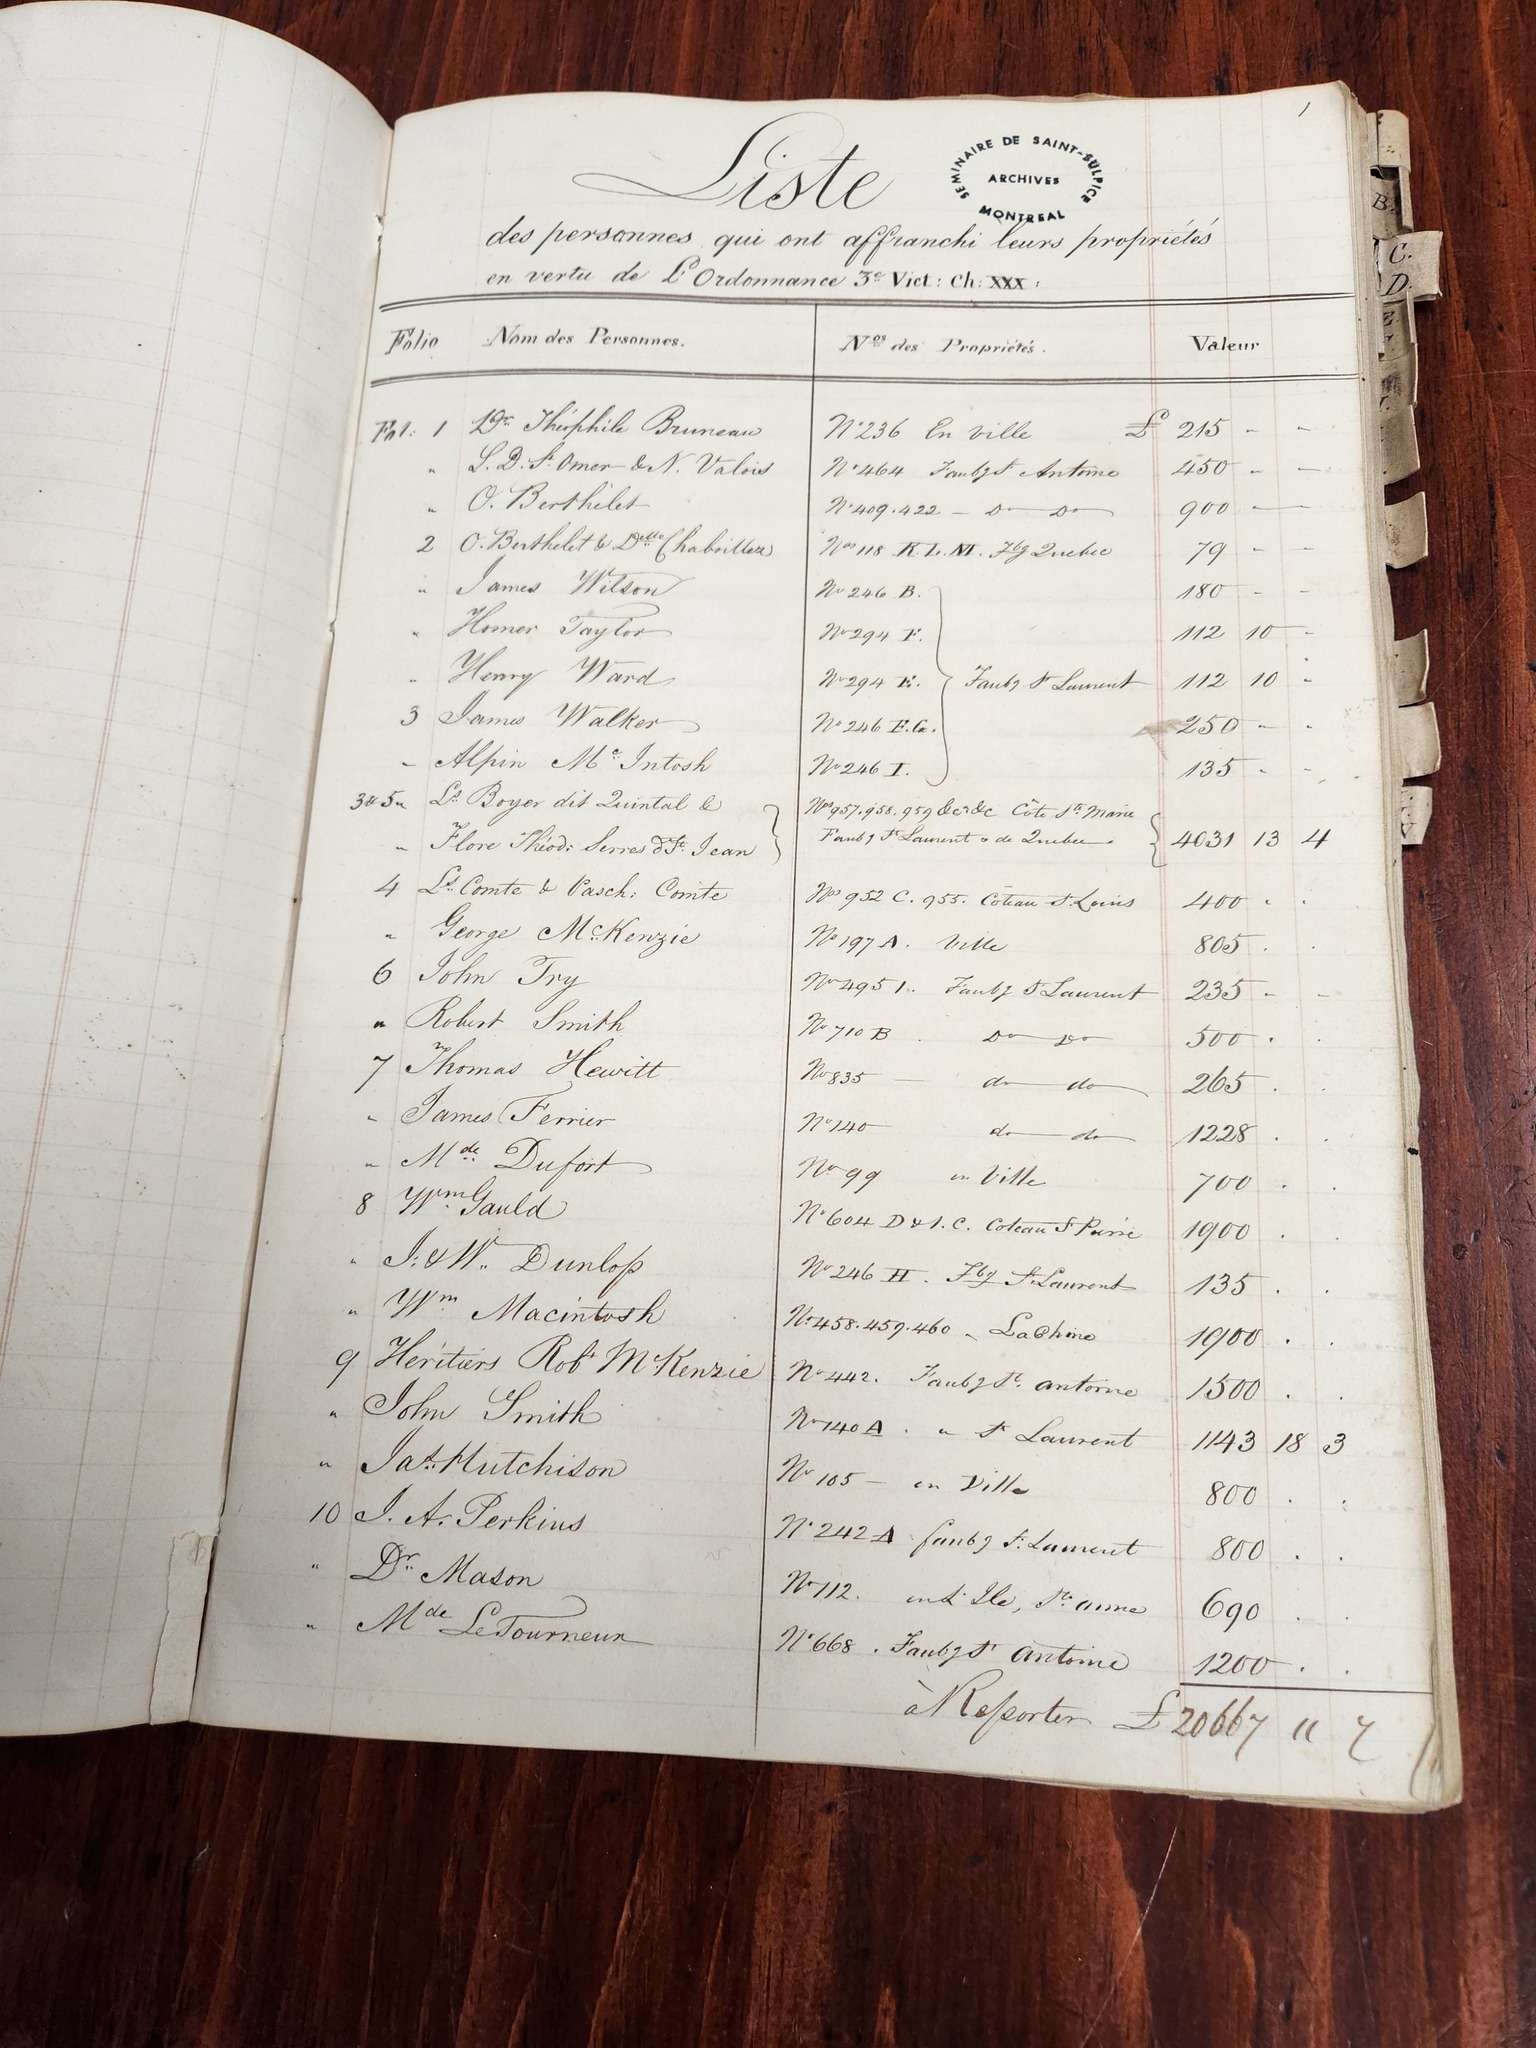 1
Liste
SEMINAIRE DE SAINT-SULPICE
ARCHIVES
MONTREAL
des personnes qui ont affranchi leurs propriétés
en vertu de L'Ordonnance 3e Vict: Ch: XXX:
Folio Nom des Personnes. Nos des Propriétés. Valeur
Fol: 1 Dr Théophile Bruneau No 236 En Ville £ 215 - -
" L. D. St Omer & N. Valois No 464 Faubg St Antoine 450 - -
" O. Berthelet No 409.422 - Do Do 900 - -
2 O. Berthelet & Delle Chaboillez Nos 118 K. L. M. Fbg Quebec 79 - -
" James Wilson No 246 B. 180 - -
" Homer Taylor No 294 F. 112 10 -
" Henry Ward No 294 E. Faubg St Laurent 112 10 -
3 James Walker No 246 F.G. 250 - -
" Alpin Mc Intosh No 246 I. 135 - -
3 & 5 " Ls Boyer dit Quintal & Nos 957.958.959 &c &c Côte Ste Marie
" Flore Théod: Serres dt St Jean Faubg St Laurent & de Quebec. 4031 13 4
4 Ls Comte & Pasch: Comte Nos 952 C. 955. Côteau St Louis 400 . .
" George McKenzie No 197 A. Ville 805 . .
6 John Try No 495 1. Faubg St Laurent 235 - -
" Robert Smith No 710 B Do Do 500 . .
7 Thomas Hewitt No 835 - do do 265 . .
" James Ferrier No 140 do do 1228 . .
" Mde Dufort No 99 en Ville 700 . .
8 Wm Gauld No 604 D & 1. C. Coteau St Pierre 1900 . .
" J. & W. Dunlop No 246 H. Fbg St Laurent 135 . .
" Wm Macintosh No 458.459.460 " LaChine 1900 . .
9 Héritiers Robt McKenzie No 442. Faubg St antoine 1500 . .
" John Smith No 140 A. " St Laurent 1143 18 3
" Jas Hutchison No 105 - en Ville 800 . .
10 J. A. Perkins No 242 A faubg St Laurent 800 . .
" Dr Mason No 112. en L'Ile, Ste anne 690 . .
" Mde LeTourneux No 668. Faubg St antoine 1200 . .
à Reporter £ 20667 11 7
B
C.
D.
E